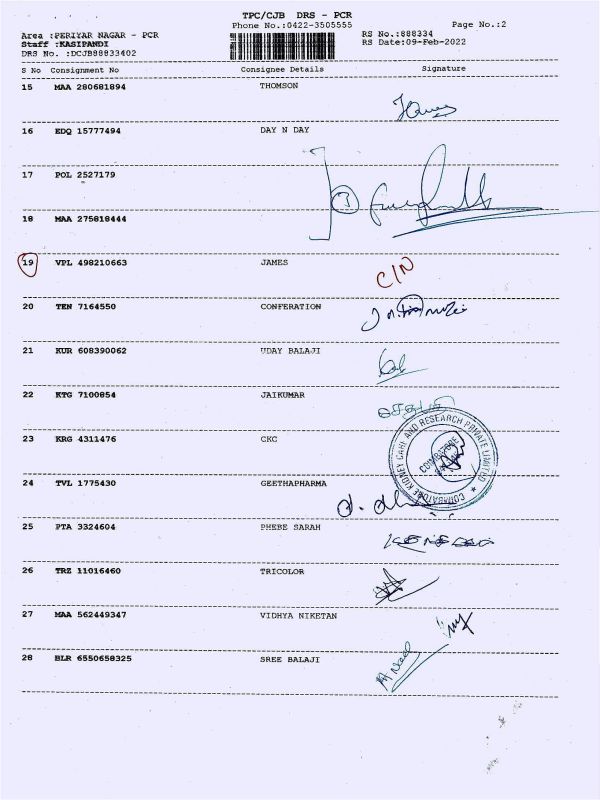 TPC/CJB DRS - PCR
Phone No.:0422-3505555
Page No.:2
Area :PERIYAR NAGAR - PCR
RS No.:888334
Staff :KASIPANDI
RS Date:09-Feb-2022
DRS No. :DCJB88833402
S No Consignment No Consignee Details Signature
15 MAA 280681894 THOMSON
16 EDQ 15777494 DAY N DAY
17 POL 2527179
3
18 MAA 275818444
19 VPL 498210663 JAMES C/N
20 TEN 7164550 CONFERATION
21 KUR 608390062 UDAY BALAJI
22 KTG 7100854 JAIKUMAR
23 KRG 4311476 CKC
COIMBATORE KIDNEY CARE AND RESEARCH PRIVATE LIMITED
COIMBATORE
24 TVL 1775430 GEETHAPHARMA
25 PTA 3324604 PHEBE SARAH
26 TRZ 11016460 TRICOLOR
27 MAA 562449347 VIDHYA NIKETAN
28 BLR 6550658325 SREE BALAJI